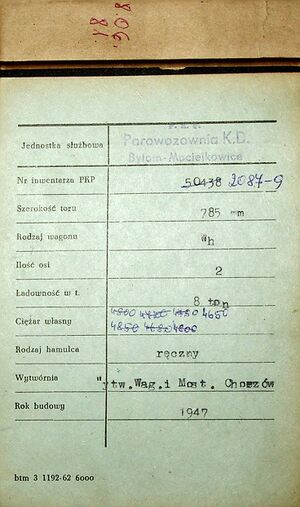 8.06.
81
P. K. P.
Parowozownia K.D.
Bytom-Maciejkowice
Jednostka służbowa
Nr inwentarza PKP 50438 2087-9
Szerokość toru 785 mm
Rodzaj wagonu Wh
Ilość osi 2
Ładowność w t. 8 ton
Ciężar własny 4800 4650
4850 4680 4600
Rodzaj hamulca ręczny
Wytwórnia Wytw.Wag.i Most. Chorzów
Rok budowy 1947
btm 3 1192-62 6000